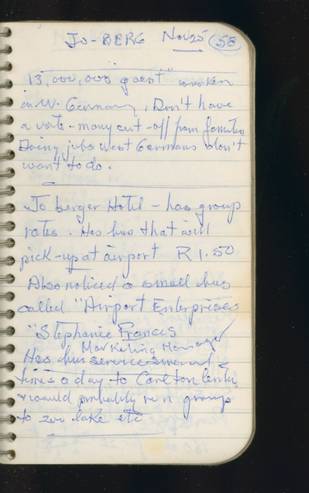 Jo-BERG Nov 25 58
13,000,000 "guest" workers
in W. Germany. Don't have
a vote - many cut-off from families
Doing jobs West Germans don't
want to do.
Jo berger Hotel - has group
rates. Has bus that will
pick-up at airport R 1.50
Also noticed a small bus
called "Airport Enterprises
"Stephanie Francis
Marketing Manager
Has bus service several
times a day to Carlton Centre
& would probably run groups
to zoo lake etc